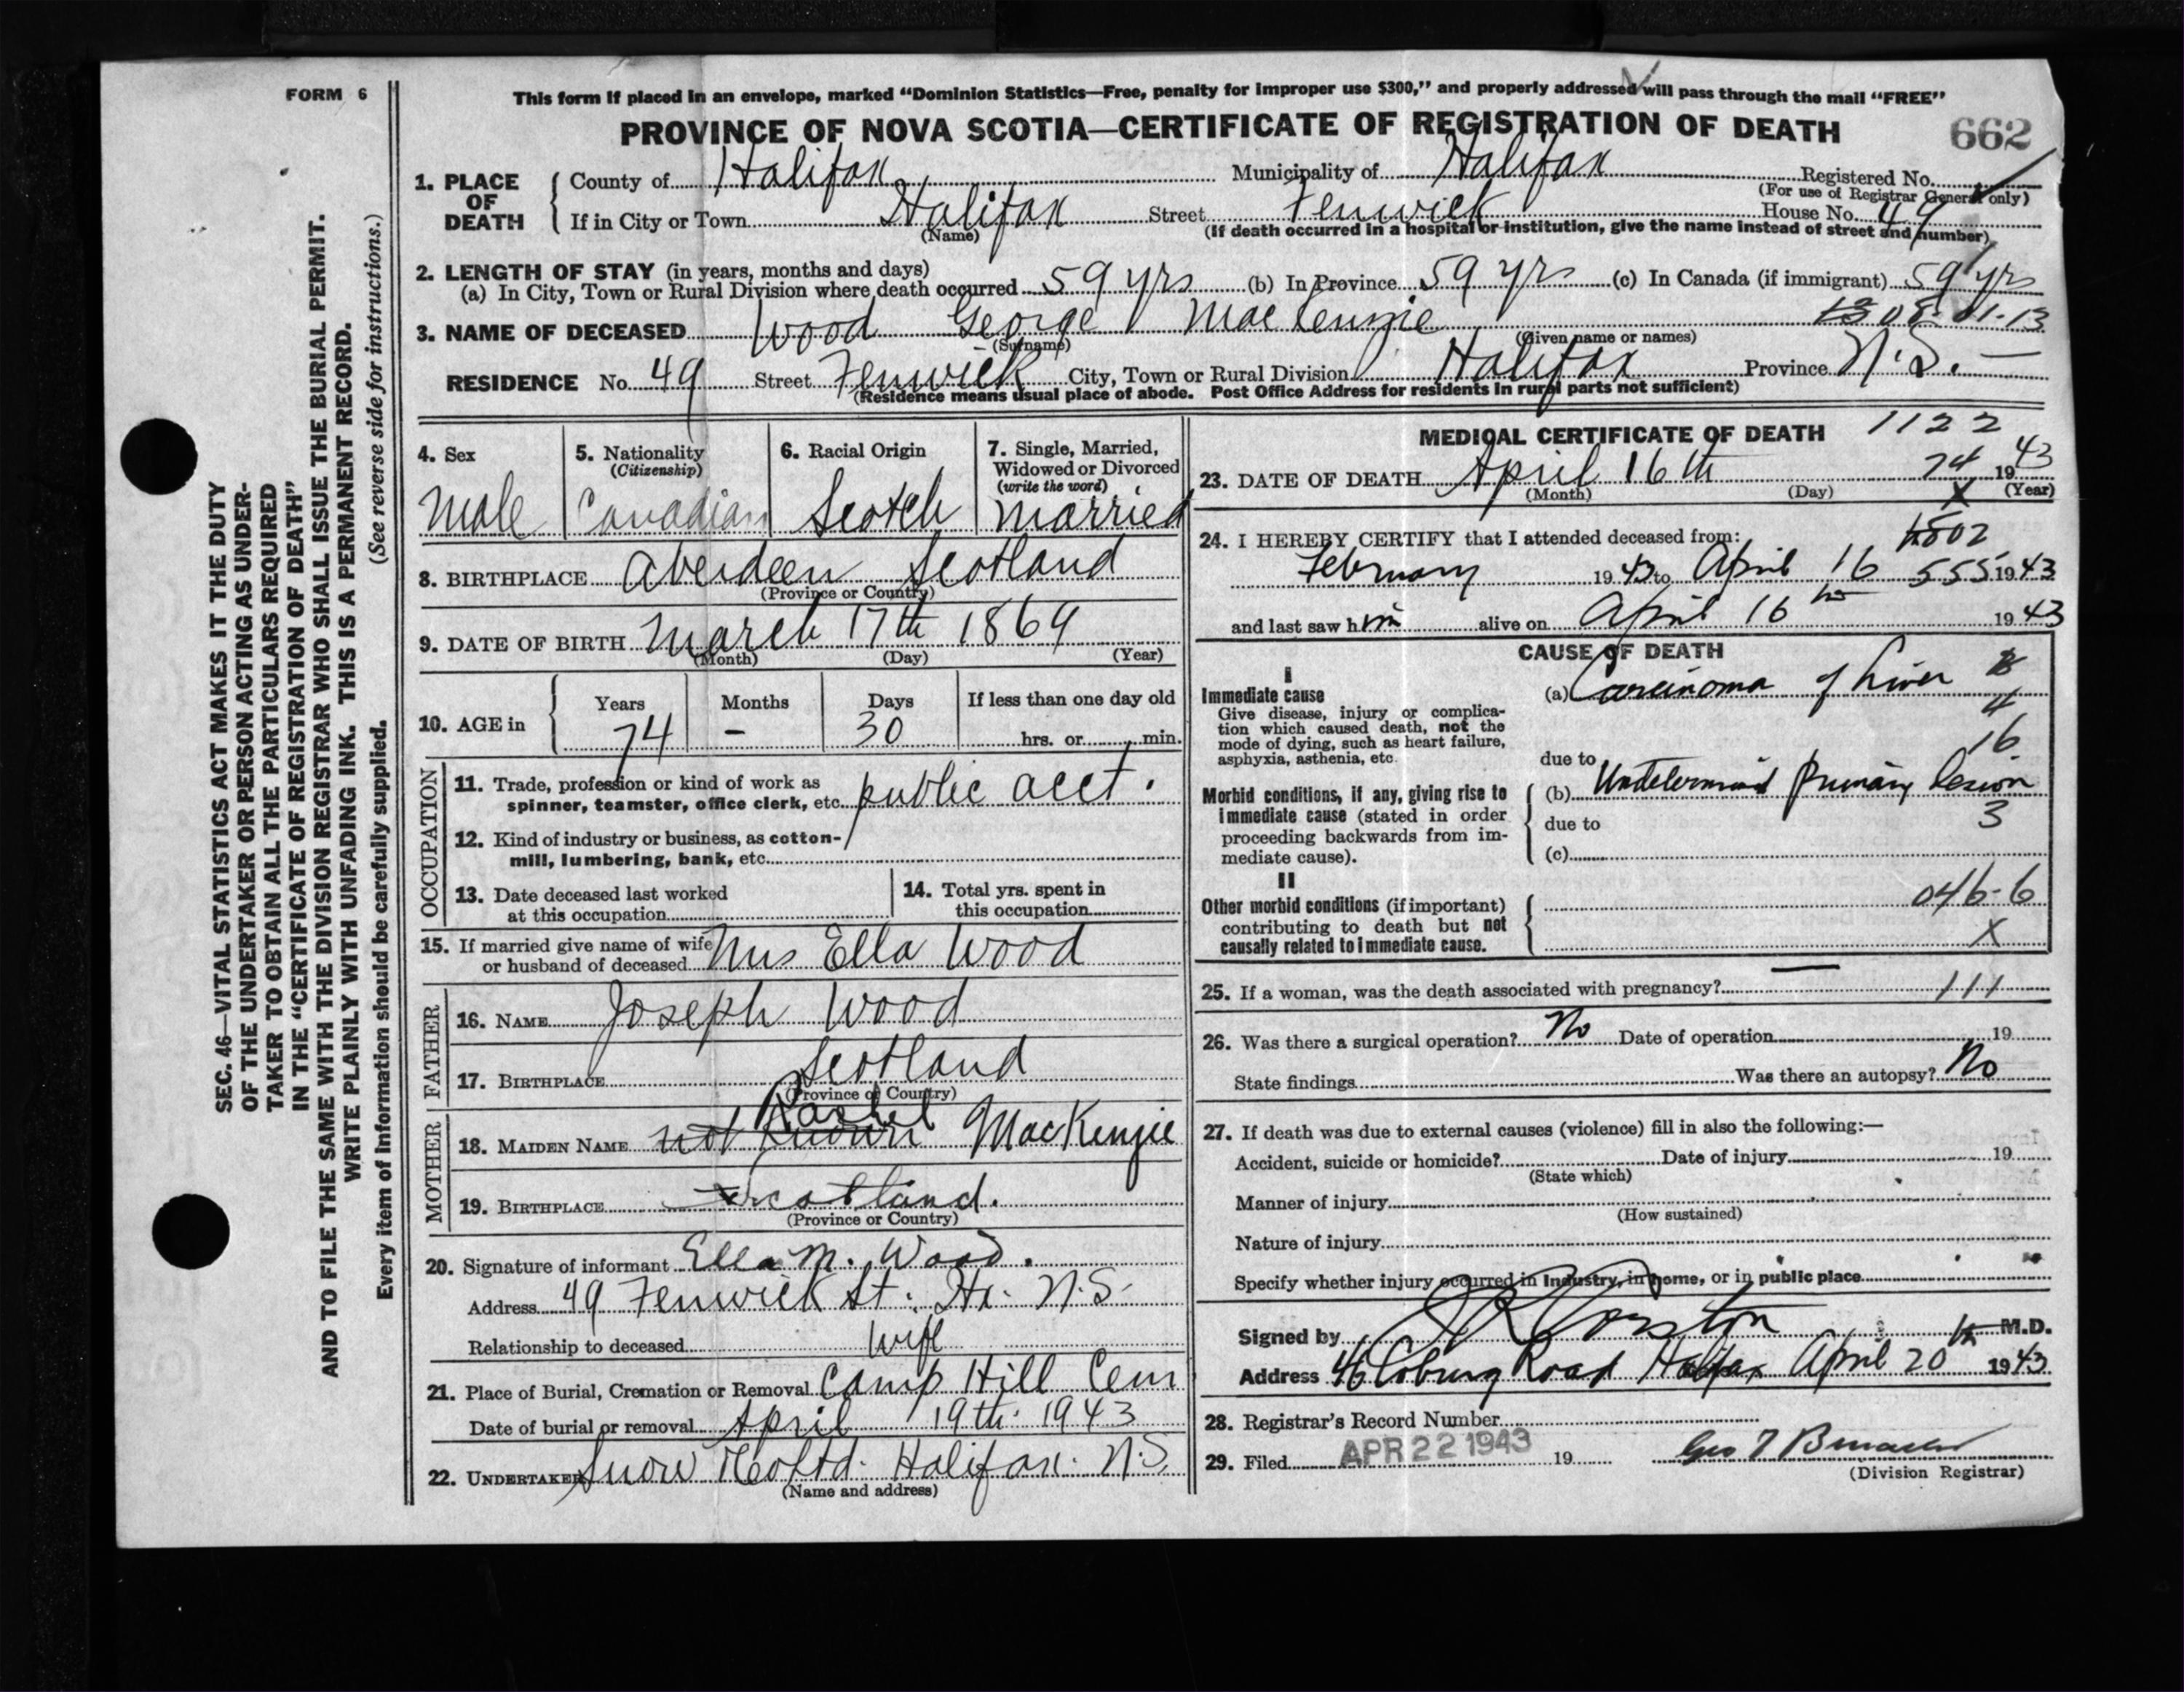 FORM 6
This form if placed in an envelope, marked “Dominion Statistics—Free, penalty for improper use $300,” and properly addressed will pass through the mail “FREE”
PROVINCE OF NOVA SCOTIA—CERTIFICATE OF REGISTRATION OF DEATH
662
1. PLACE OF DEATH
County of Halifax Municipality of Halifax Registered No.
(For use of Registrar General only)
If in City or Town Halifax Street Fenwick House No. 49
(Name) (If death occurred in a hospital or institution, give the name instead of street and number)
2. LENGTH OF STAY (in years, months and days)
(a) In City, Town or Rural Division where death occurred 59 yrs (b) In Province 59 yrs (c) In Canada (if immigrant) 59 yrs
3. NAME OF DECEASED Wood George MacKenzie 08-01-13
(Surname) (Given name or names)
RESIDENCE No. 49 Street Fenwick City, Town or Rural Division Halifax Province N.S. —
(Residence means usual place of abode. Post Office Address for residents in rural parts not sufficient)
4. Sex
Male
5. Nationality
(Citizenship)
Canadian
6. Racial Origin
Scotch
7. Single, Married,
Widowed or Divorced
(write the word)
Married
8. BIRTHPLACE Aberdeen Scotland
(Province or Country)
9. DATE OF BIRTH March 17th 1869
(Month) (Day) (Year)
10. AGE in
Years Months Days If less than one day old
74 – 30 hrs. or min.
OCCUPATION
11. Trade, profession or kind of work as
spinner, teamster, office clerk, etc. public acct.
12. Kind of industry or business, as cotton-
mill, lumbering, bank, etc.
13. Date deceased last worked
at this occupation
14. Total yrs. spent in
this occupation
15. If married give name of wife
or husband of deceased Mrs Ella Wood
FATHER
16. NAME Joseph Wood
17. BIRTHPLACE Scotland
(Province or Country)
MOTHER
Rachel
18. MAIDEN NAME not known MacKenzie
19. BIRTHPLACE Scotland.
(Province or Country)
20. Signature of informant Ella M. Wood.
Address 49 Fenwick St. Hx. N.S.
Relationship to deceased Wife
21. Place of Burial, Cremation or Removal Camp Hill Cem
Date of burial or removal April 19th 1943
22. UNDERTAKER Snow & Co Ltd. Halifax. N.S.
(Name and address)
MEDICAL CERTIFICATE OF DEATH 1122
23. DATE OF DEATH April 16th 74 1943
(Month) (Day) X (Year)
24. I HEREBY CERTIFY that I attended deceased from: 1802
February 1943 to April 16 555 1943
and last saw him alive on April 16 1943
CAUSE OF DEATH
I
Immediate cause
Give disease, injury or complica-
tion which caused death, not the
mode of dying, such as heart failure,
asphyxia, asthenia, etc.
(a) Carcinoma of Liver
4
16
due to
Morbid conditions, if any, giving rise to
immediate cause (stated in order
proceeding backwards from im-
mediate cause).
(b) Undetermined primary lesion
due to 3
(c)
II
Other morbid conditions (if important)
contributing to death but not
causally related to immediate cause.
046-6
X
25. If a woman, was the death associated with pregnancy? — 111
26. Was there a surgical operation? No Date of operation 19
State findings Was there an autopsy? No
27. If death was due to external causes (violence) fill in also the following:—
Accident, suicide or homicide? Date of injury 19
(State which)
Manner of injury
(How sustained)
Nature of injury
Specify whether injury occurred in Industry, in home, or in public place
Signed by J R Corston M.D.
Address 46 Coburg Road Halifax April 20 1943
28. Registrar's Record Number
29. Filed APR 22 1943 19
(Division Registrar)
SEC. 46—VITAL STATISTICS ACT MAKES IT THE DUTY
OF THE UNDERTAKER OR PERSON ACTING AS UNDER-
TAKER TO OBTAIN ALL THE PARTICULARS REQUIRED
IN THE “CERTIFICATE OF REGISTRATION OF DEATH”
AND TO FILE THE SAME WITH THE DIVISION REGISTRAR WHO SHALL ISSUE THE BURIAL PERMIT.
WRITE PLAINLY WITH UNFADING INK. THIS IS A PERMANENT RECORD.
(See reverse side for instructions.)
Every item of information should be carefully supplied.